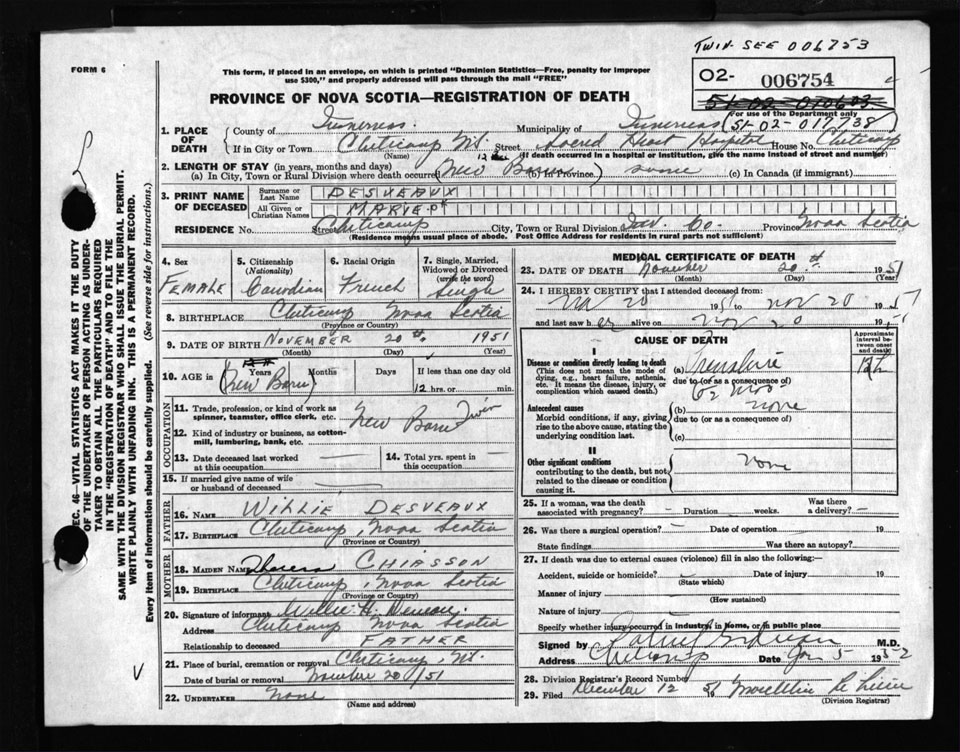 TWIN- SEE 006753
FORM 6
This form, if placed in an envelope, on which is printed "Dominion Statistics—Free, penalty for improper
use $300," and properly addressed will pass through the mail "FREE"
02- 006754
51-02-010603
For use of the Department only
51-02-017738
PROVINCE OF NOVA SCOTIA—REGISTRATION OF DEATH
1. PLACE OF DEATH
County of Inverness. Municipality of Inverness
If in City or Town Cheticamp Street Sacred Heart Hospital House No. Cheticamp
(Name) (If death occurred in a hospital or institution, give the name instead of street and number)
2. LENGTH OF STAY (in years, months and days)
(a) In City, Town or Rural Division where death occurred (New Born) (b) In Province same (c) In Canada (if immigrant)
3. PRINT NAME OF DECEASED
Surname or Last Name DESVEAUX
All Given or Christian Names MARY
RESIDENCE No. Street Cheticamp City, Town or Rural Division Inv. Co. Province Nova Scotia
(Residence means usual place of abode. Post Office Address for residents in rural parts not sufficient)
4. Sex FEMALE
5. Citizenship (Nationality) Canadian
6. Racial Origin French
7. Single, Married, Widowed or Divorced (write the word) Single
8. BIRTHPLACE Cheticamp Nova Scotia
(Province or Country)
9. DATE OF BIRTH NOVEMBER 20th 1951
(Month) (Day) (Year)
10. AGE in Years Months Days If less than one day old
(New Born) 12 hrs. or min.
OCCUPATION
11. Trade, profession, or kind of work as spinner, teamster, office clerk, etc. New Born Twin
12. Kind of industry or business, as cotton-mill, lumbering, bank, etc.
13. Date deceased last worked at this occupation
14. Total yrs. spent in this occupation
15. If married give name of wife or husband of deceased
FATHER
16. NAME WILLIE DESVEAUX
17. BIRTHPLACE Cheticamp, Nova Scotia
(Province or Country)
MOTHER
18. MAIDEN NAME CHIASSON
19. BIRTHPLACE Cheticamp, Nova Scotia
(Province or Country)
20. Signature of informant Willie H.
Address Cheticamp Nova Scotia
Relationship to deceased FATHER
21. Place of burial, cremation or removal Cheticamp,
Date of burial or removal November 20/51
22. UNDERTAKER None
(Name and address)
MEDICAL CERTIFICATE OF DEATH
23. DATE OF DEATH November 20th 1951
(Month) (Day)
24. I HEREBY CERTIFY that I attended deceased from:
Nov 20 1951 to Nov 20 1951
and last saw her alive on Nov 20 1951
CAUSE OF DEATH
Approximate interval between onset and death
I
Disease or condition directly leading to death
(This does not mean the mode of dying, e.g., heart failure, asthenia, etc. It means the disease, injury, or complication which caused death.)
(a) Premature
due to (or as a consequence of)
6½ mos
12 h
Antecedent causes
Morbid conditions, if any, giving rise to the above cause, stating the underlying condition last.
(b) none
due to (or as a consequence of)
(c)
II
Other significant conditions
contributing to the death, but not related to the disease or condition causing it.
none
25. If a woman, was the death associated with pregnancy? - Duration weeks. Was there a delivery? -
26. Was there a surgical operation? - Date of operation 19
State findings Was there an autopsy?
27. If death was due to external causes (violence) fill in also the following:—
Accident, suicide or homicide? Date of injury 19
(State which)
Manner of injury
(How sustained)
Nature of injury
Specify whether injury occurred in industry, in home, or in public place
Signed by M.D.
Address Cheticamp Date Jan 5 1952
28. Division Registrar's Record Number
29. Filed December 12 51
(Division Registrar)
SEC. 46—VITAL STATISTICS ACT MAKES IT THE DUTY
OF THE UNDERTAKER OR PERSON ACTING AS UNDER-
TAKER TO OBTAIN ALL THE PARTICULARS REQUIRED
IN THE "REGISTRATION OF DEATH" AND TO FILE THE
SAME WITH THE DIVISION REGISTRAR WHO SHALL ISSUE THE BURIAL PERMIT.
WRITE PLAINLY WITH UNFADING INK. THIS IS A PERMANENT RECORD.
Every item of information should be carefully supplied. (See reverse side for instructions.)